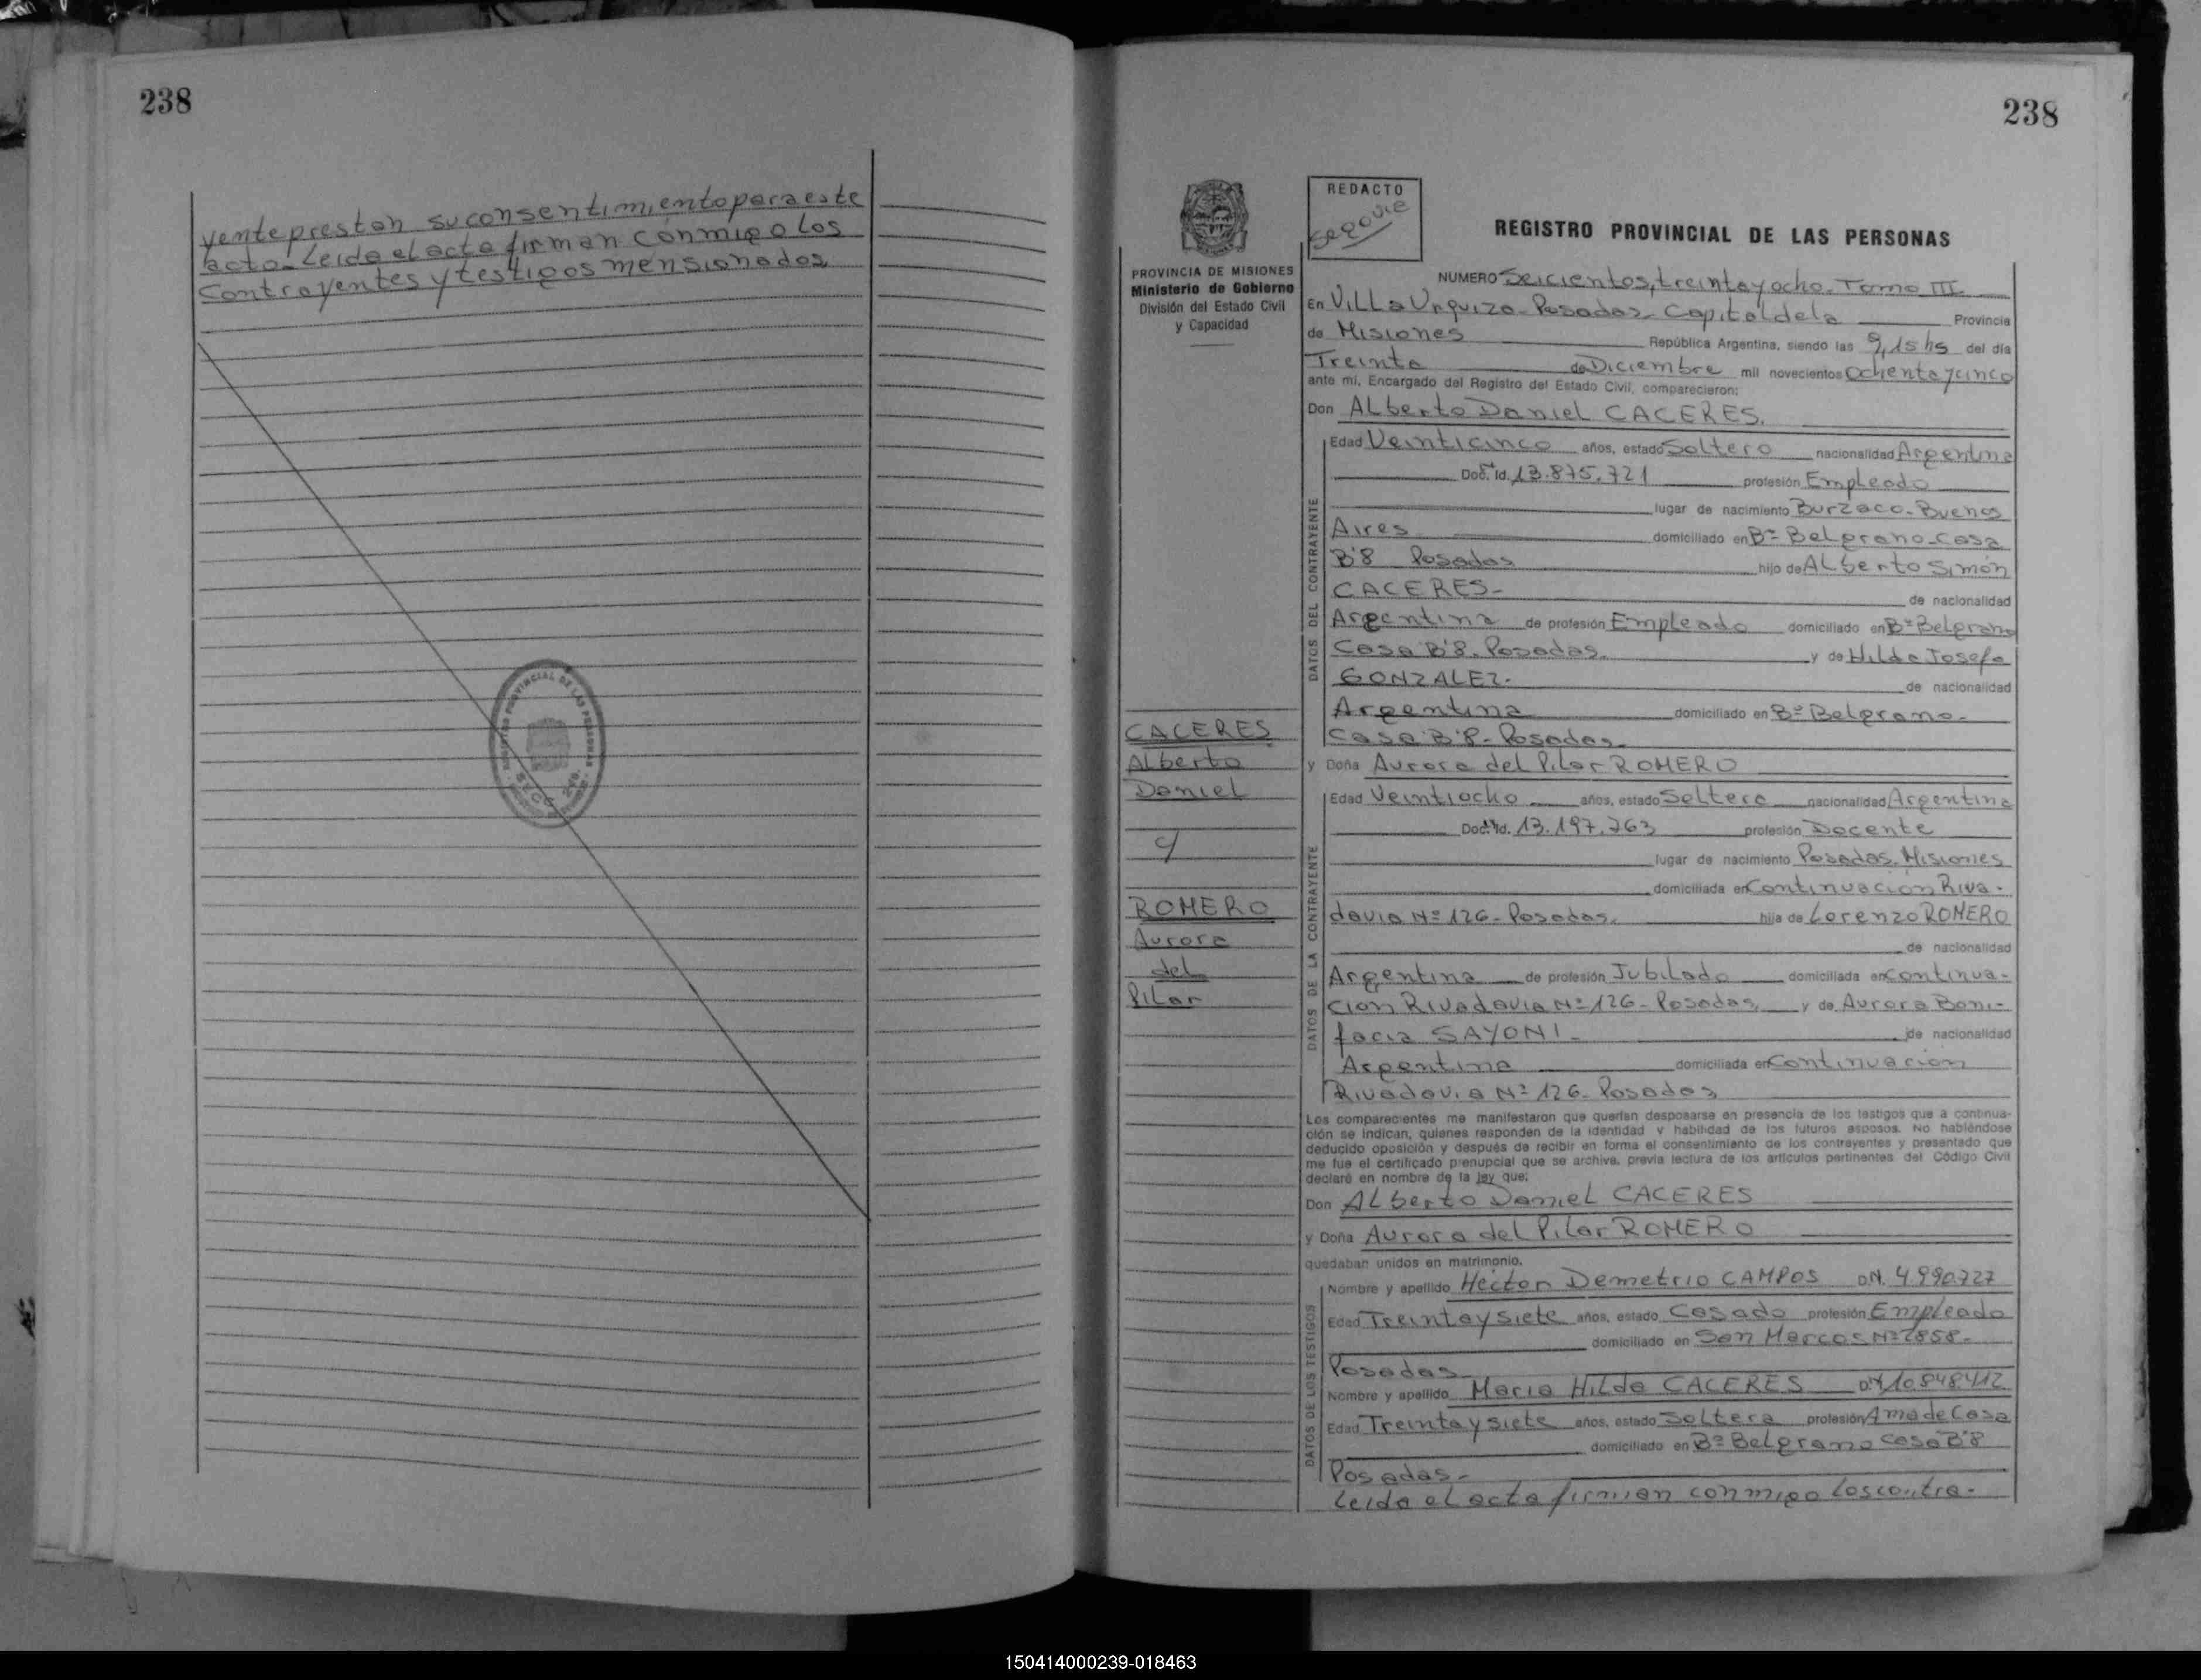 238
yente prestan su consentimiento para este
acto. Leida el acta firman conmigo los
Contrayentes y testigos mensionados
238
REDACTO
Segovia
REGISTRO PROVINCIAL DE LAS PERSONAS
PROVINCIA DE MISIONES
Ministerio de Gobierno
División del Estado Civil
y Capacidad
NUMERO Seicientos, treinta y ocho. Tomo III
En Villa Urquiza - Posadas - Capital de la Provincia
de Misiones República Argentina, siendo las 9,15 hs del día
Treinta de Diciembre mil novecientos Ochenta y cinco
ante mí, Encargado del Registro del Estado Civil, comparecieron:
Don ALberto Daniel CACERES.
DATOS DEL CONTRAYENTE
Edad Veinticinco años, estado Soltero nacionalidad Argentina
Doc. Id. 13.875.721 profesión Empleado
lugar de nacimiento Burzaco - Buenos
Aires domiciliado en Bº Belgrano - Casa
B'8 Posadas hijo de ALberto Simón
CACERES - de nacionalidad
Argentina de profesión Empleado domiciliado en Bº Belgrano
Casa B'8. Posadas. y de Hilda Josefa
GONZALEZ. de nacionalidad
Argentina domiciliado en Bº Belgrano -
Casa B'8 - Posadas -
y Doña Aurora del Pilar ROMERO
CACERES
Alberto
Daniel
c/
ROMERO
Aurora
del
Pilar
DATOS DE LA CONTRAYENTE
Edad Veintiocho años, estado Soltera nacionalidad Argentina
Doc. Id. 13.197.763 profesión Docente
lugar de nacimiento Posadas. Misiones
domiciliada en Continuación Riva-
davia Nº 126 - Posadas. hija de Lorenzo ROMERO
de nacionalidad
Argentina de profesión Jubilado domiciliada en Continua-
cion Rivadavia Nº 126 - Posadas, y de Aurora Boni-
facia SAYONI - de nacionalidad
Argentina domiciliada en Continuacion
Rivadavia Nº 126 - Posadas
Los comparecientes me manifestaron que querían desposarse en presencia de los testigos que a continua-
ción se indican, quienes responden de la identidad y habilidad de los futuros esposos. No habiéndose
deducido oposición y después de recibir en forma el consentimiento de los contrayentes y presentado que
me fue el certificado prenupcial que se archiva, previa lectura de los artículos pertinentes del Código Civil
declaré en nombre de la ley que:
Don ALberto Daniel CACERES
y Doña Aurora del Pilar ROMERO
quedaban unidos en matrimonio.
DATOS DE LOS TESTIGOS
Nombre y apellido Héctor Demetrio CAMPOS D.N. 4.990.727
Edad Treinta y siete años, estado Casado profesión Empleado
domiciliado en San Marcos Nº 2858 -
Posadas
Nombre y apellido Maria Hilda CACERES D.N. 10.848.412
Edad Treinta y siete años, estado Soltera profesión Ama de Casa
domiciliado en Bº Belgrano Casa B'8
Posadas -
Leida el acta firman conmigo los contra-
150414000239-018463